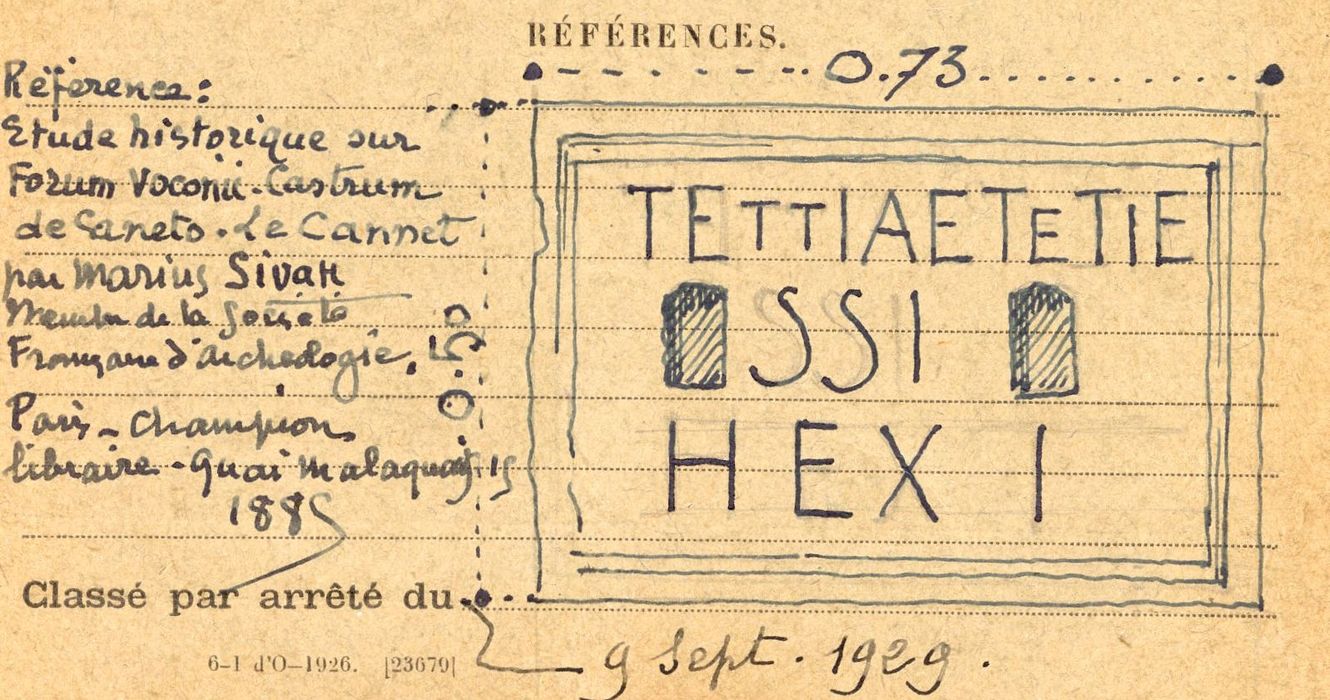 RÉFÉRENCES.
0.73
Référence:
Etude historique sur
Forum Voconii-Castrum
de Caneto. Le Cannet
par Marius Sivan
Membre de la Société
Française d'Archeologie.
0.50
Paris - Champion
libraire - Quai Malaquais 15
1885
TETTIAETETIE
SSI
HEXI
Classé par arrêté du
9 Sept. 1929.
6-1 d'O-1926. [23679]